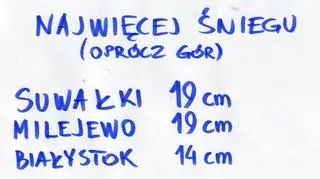 NAJWIĘCEJ ŚNIEGU
(OPRÓCZ GÓR)
SUWAŁKI 19 cm
MILEJEWO 19 cm
BIAŁYSTOK 14 cm